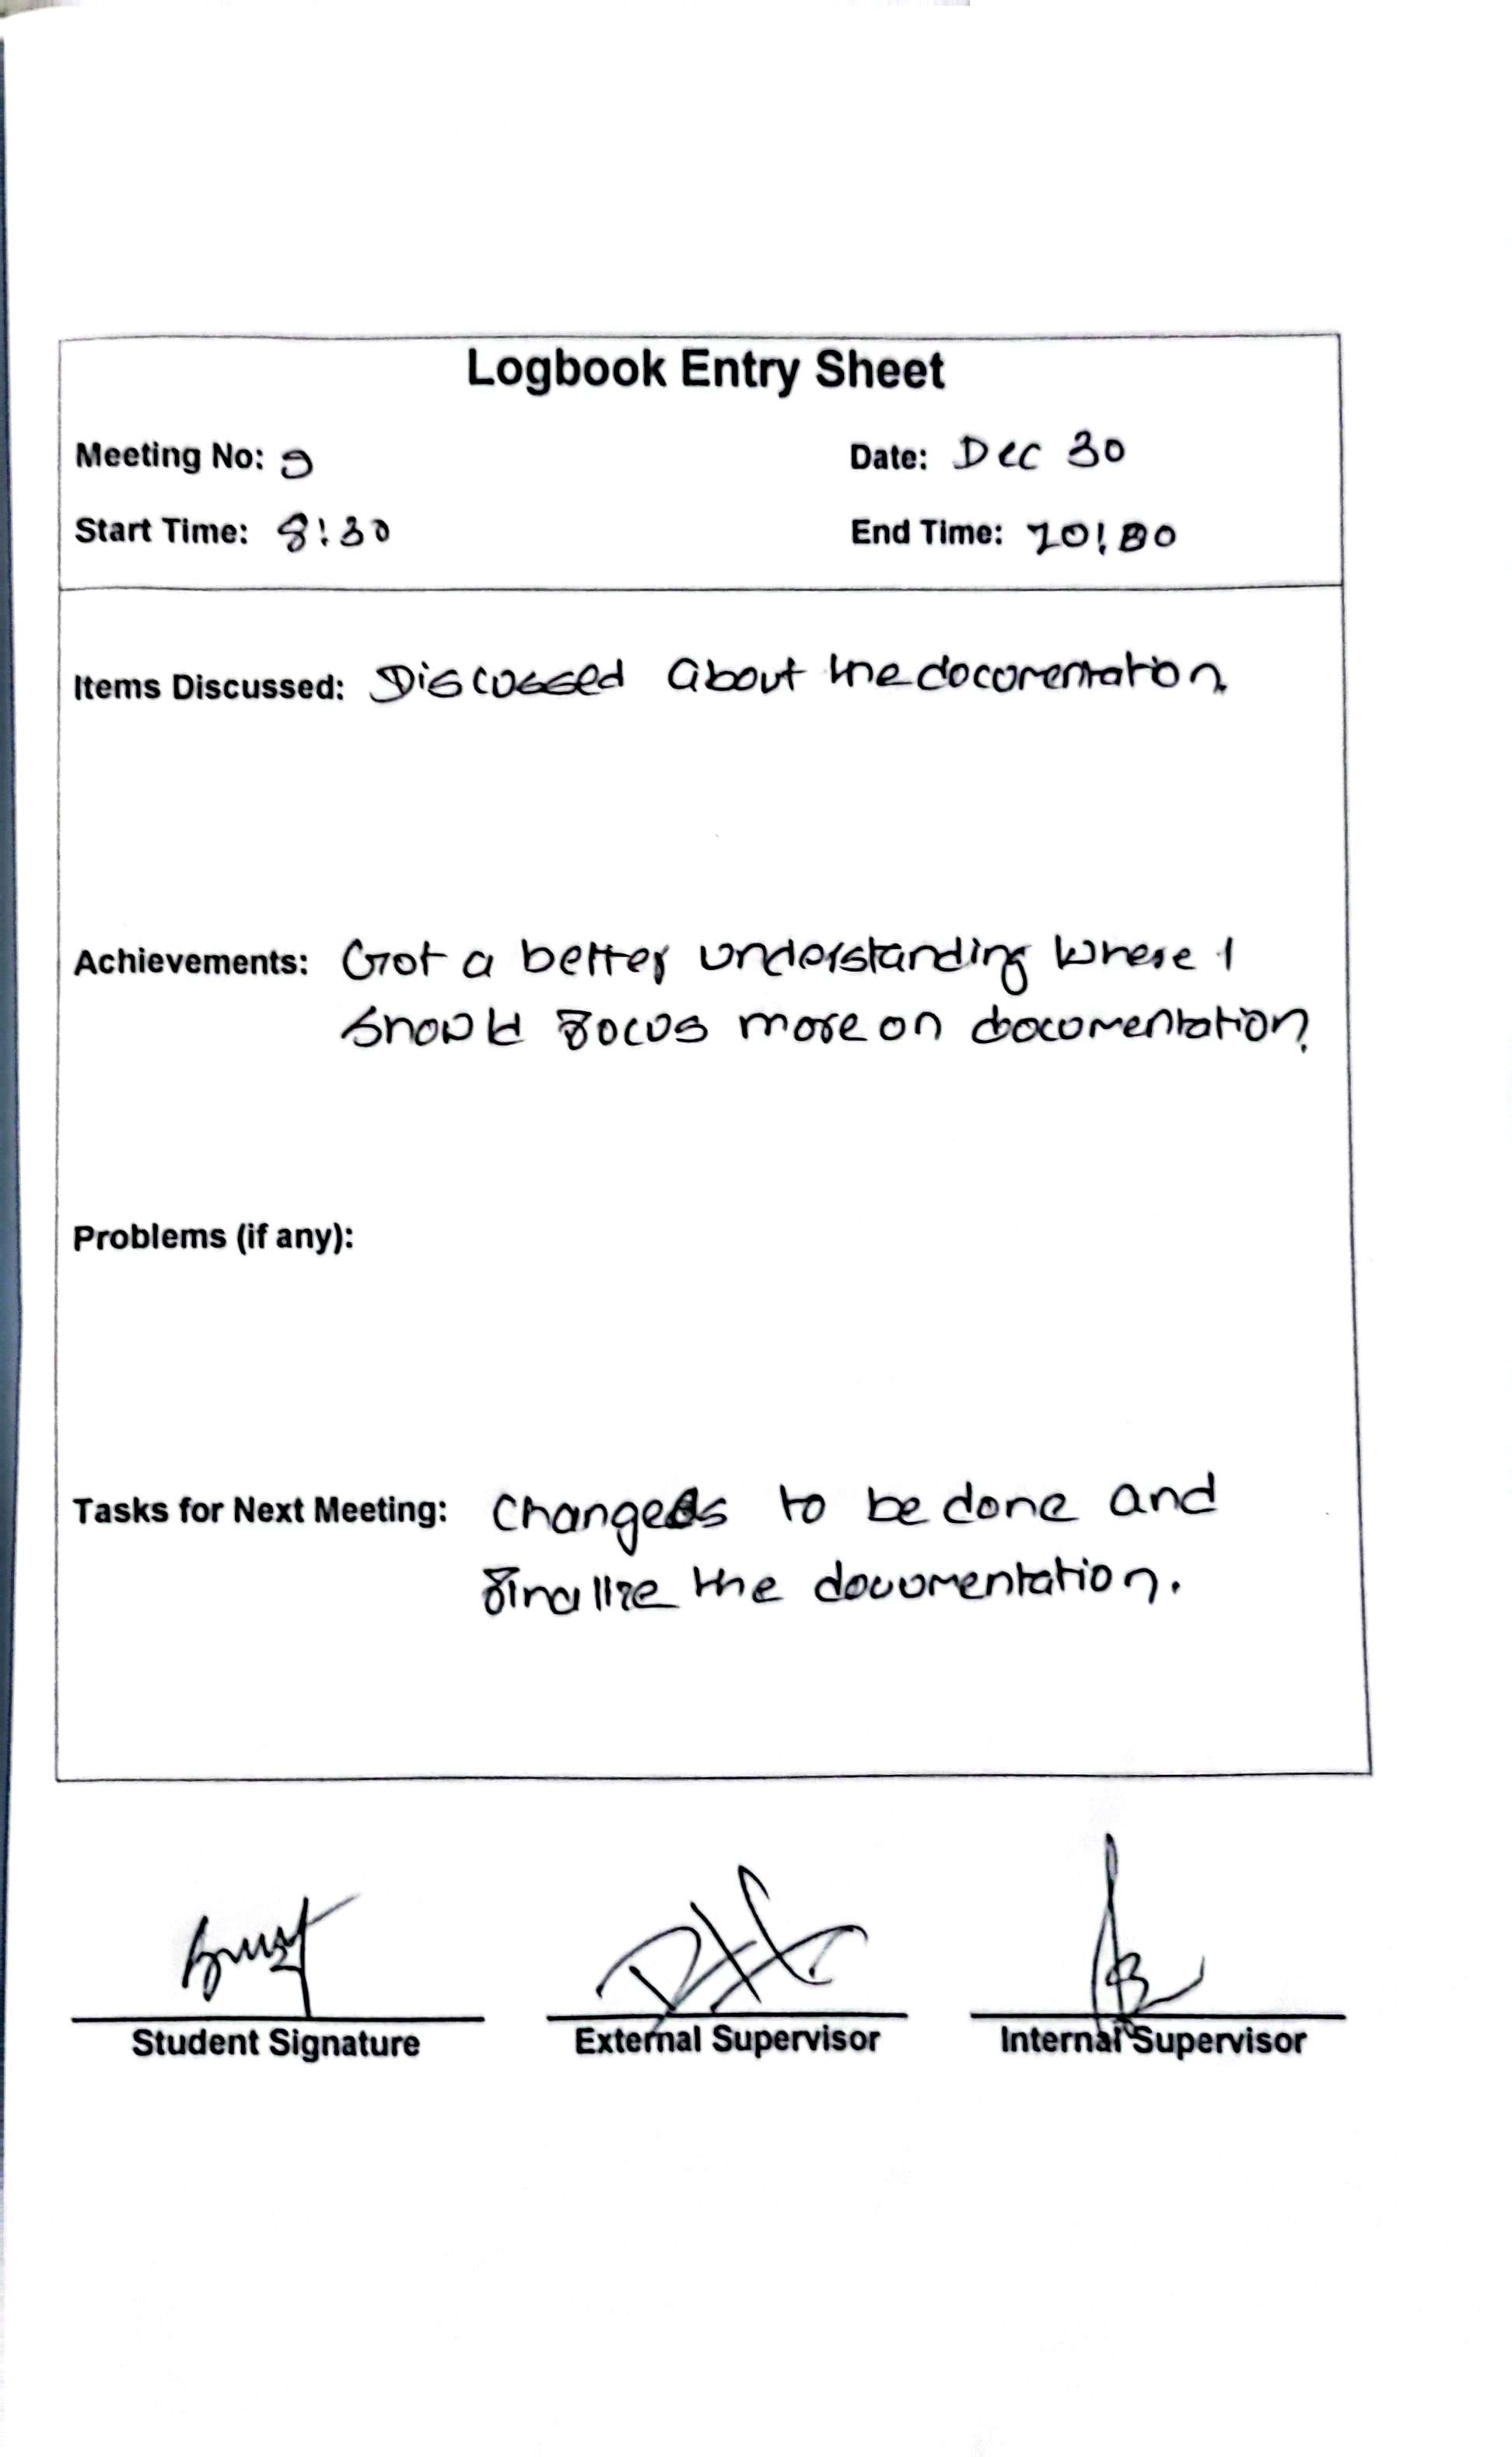 Logbook Entry Sheet
Meeting No: 9 Date: Dec 30
Start Time: 8:30 End Time:
Items Discussed: Discussed about the documentation
Achievements: Got a better understanding where I
should focus more on documentation.
Problems (if any):
Tasks for Next Meeting: Changes to be done and
finalize the documentation.
Student Signature External Supervisor Internal Supervisor